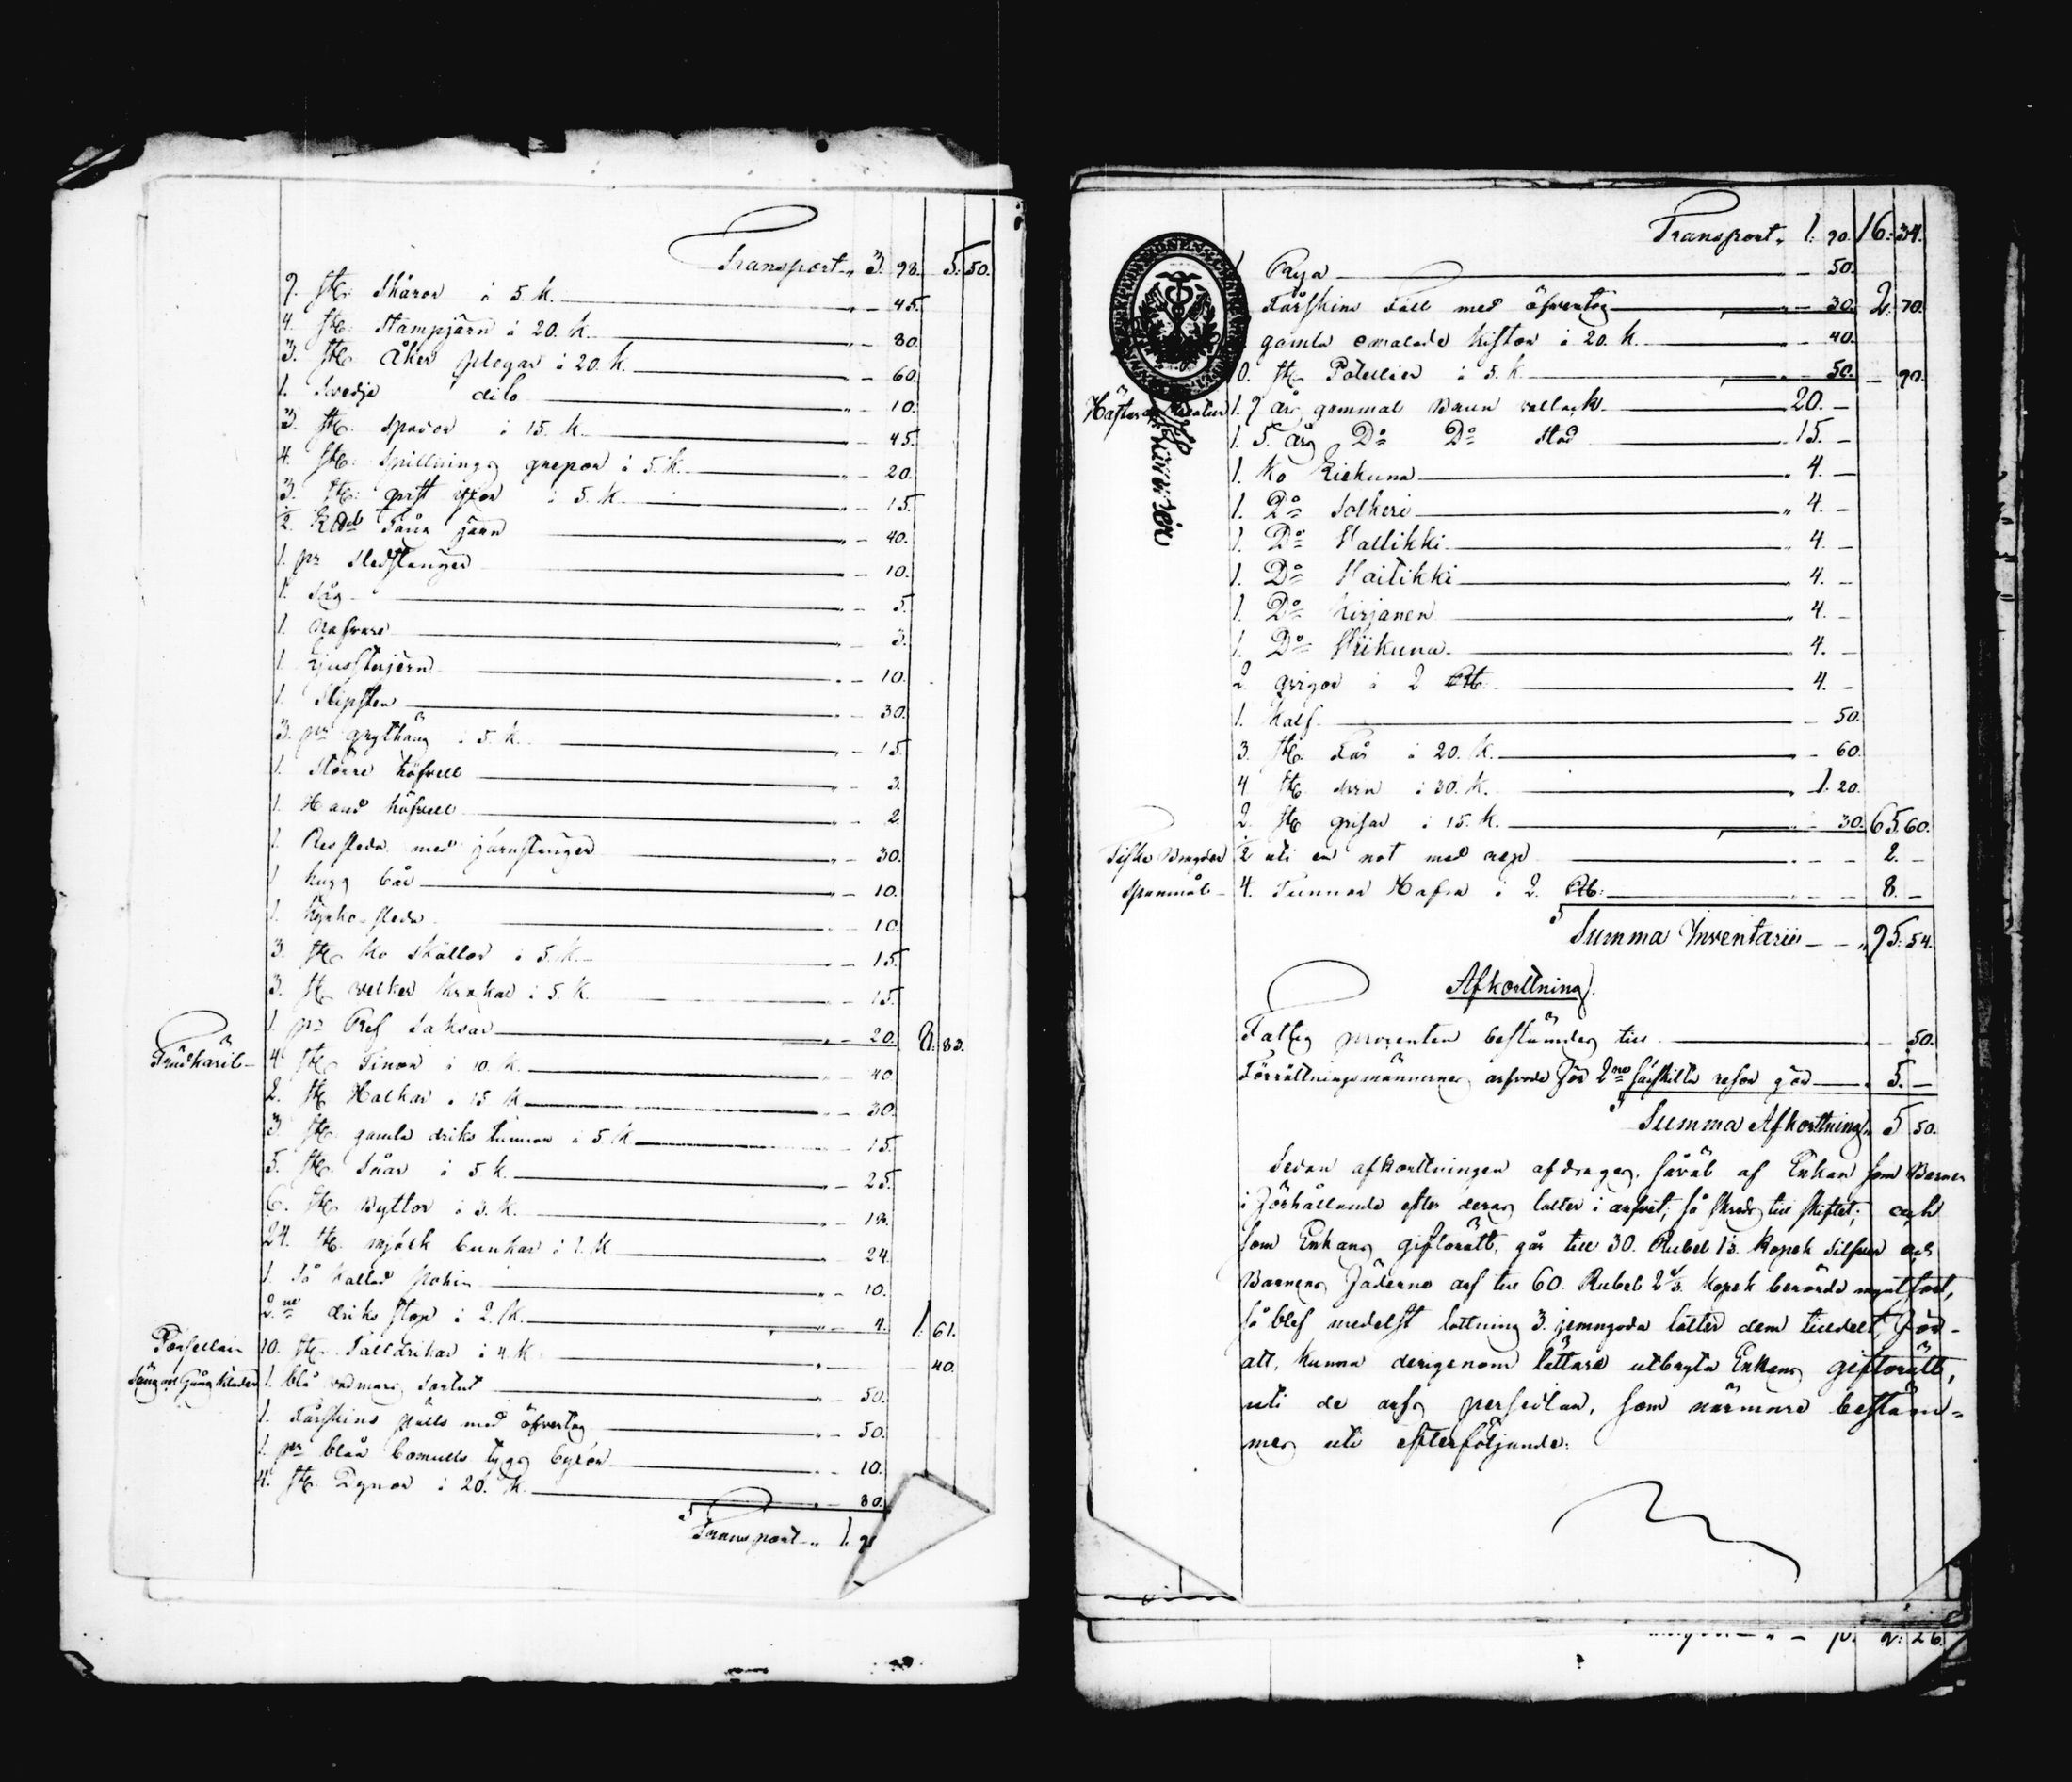 Transport 3. 98. 5. 50.
9. st. Skäror à 5. K. 45.
4. st. Stampjärn à 20. K. 80.
3. st. Åker plogar à 20. K. 60.
1. Svedje dito 10.
3. st. Spador à 15. K. 45.
4. st. Spillnings grepar à 5. K. 20.
3. st. yxor à 5. K. 15.
2. järn 40.
1. pr Sledstänger 10.
1. Såg 5.
1. Nafvare 3.
1. Ljusterjern 10.
1. Slipsten 30.
3. pr grythäng à 5. K. 15.
1. Större höfvell 3.
1. Hand höfvell 2.
1. Resleda med järnstänger 30.
1. hugg bår 10.
1. Kyrko sleda 10.
3. st. Ko skällor à 5. K. 15.
3. st. krakar à 5. K. 15.
1. pr Ref 20. 8. 83.
Trädkäril 4 st. Tinor à 10. K. 40.
2. st. Halkar à 15 K 30.
3 st. gamla driks tunnor à 5. K 15.
5. st. Såar à 5 K. 25.
6. st. Byttor à 3. K. 18.
24. st. mjölk bunkar à 1. K 24.
1. Så kallad pohin 10.
2ne driks stop à 2. K. 4. 1. 61.
Porsellain 10. st. Talldrikar à 4. K 40.
Säng och Gång kläder 1. blå vadmars Sortut 50.
1. Fårskins päls med öfvertag 50.
1. pr blåa bomulls tygs byxor 10.
4. st. Dynor à 20. K. 80.
Transport 1. 9
Transport 1. 90. 16. 34.
Rya 50.
Fårskins Fäll med öfvertag 30. 2. 70.
gamla omalade kistor à 20. K. 40.
0. st. Buteljer à 5. K. 50. 90.
Hästar och Kreatur 1. 9 års gammal Brun vallack 20.
1. 5. års Do Do Stod 15.
1. Ko Kiekuna 4.
1. Do Solkeri 4.
1. Do Hallikki 4.
1. Do Haitikki 4.
1. Do Kirjanen 4.
1. Do Hiikuna 4.
2 qvigor à 2 Rb. 4.
1. Kalf 50.
3 st. Får à 20. K. 60.
4 st. à 30. K. 1. 20.
2. st. grisar à 15. K. 30. 65. 60.
Fiske Bragder 1/2 uti en not med rep 2.
Spanmål 4. Tunnor Hafra à 2. Rb. 8.
Summa Inventarii 95. 54.
Afkortning
Fattig procenten bestämdes till 50.
Förrättningsmännernes arfvode för 2ne särskilta resor gör 5.
Summa Afkortning 5 50.
Sedan afkortningen afdrages, såväl af Enkan som Barnen
i förhållande efter deras lotter i arfvet; så skreds till skiftet; och
som Enkans giftorätt går till 30. Rubel 1 1/3. kopek Silfver och
Barnens fäderne arf till 60. Rubel 2 2/3. kopek berörde myntsort,
så blef medelst lottning 3. jemngoda lotter dem tilldelt, för
att kunna derigenom lättare utbryta Enkans giftorätt,
uti de arfs persedlar, som närmare bestäm-
mes uti efterföljande: